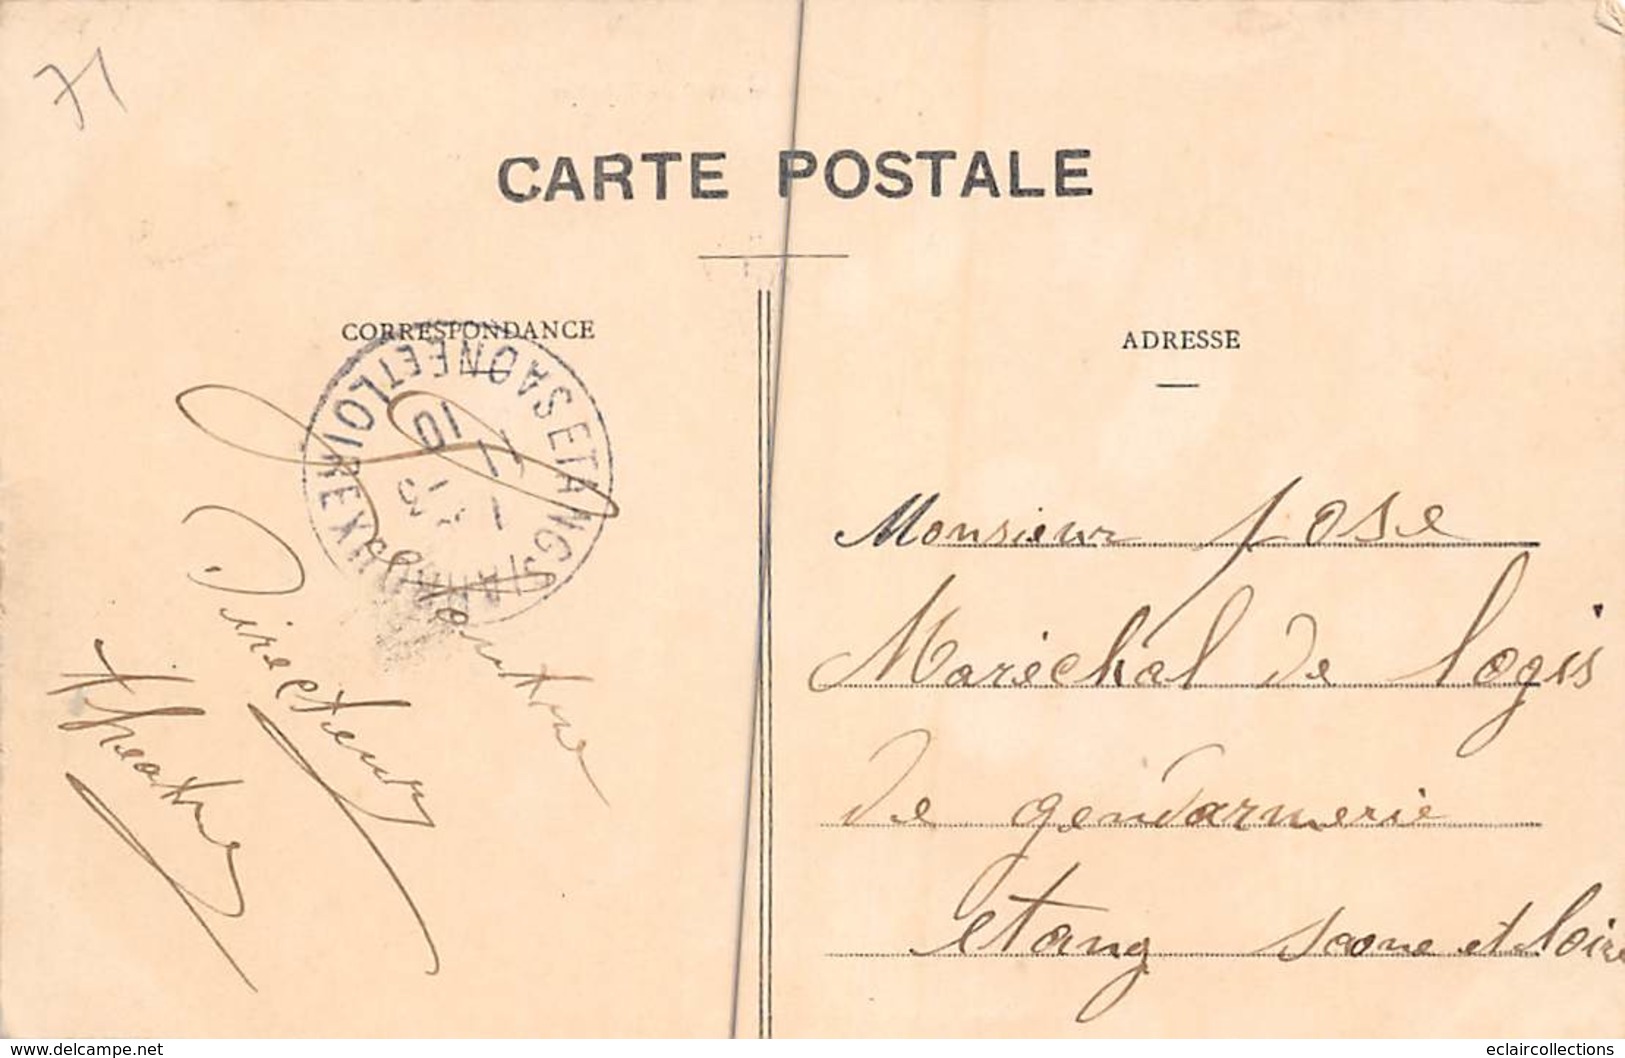 71
CARTE POSTALE
CORRESPONDANCE
ADRESSE
ETANG S ARROUX
SAONE ET LOIRE
10
Directeur
Theatre
Monsieur Jose
Maréchal de logis
de gendarmerie
etang saone et loire
www.delcampe.net
eclaircollections